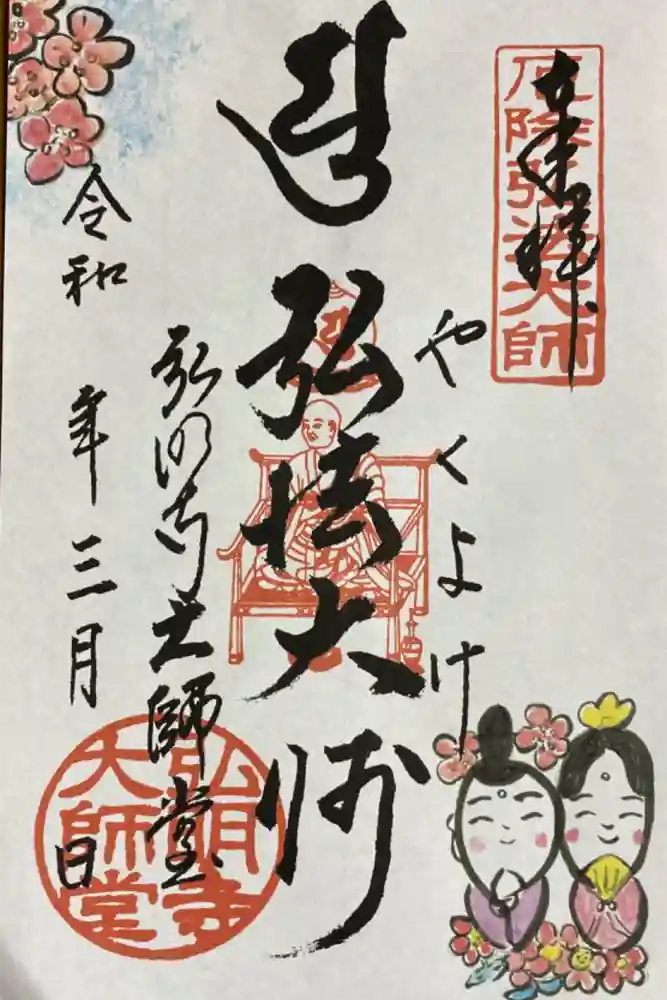 奉拝
厄除弘法大師
やくよけ
弘法大師
弘明寺大師堂
令和 年三月 日
弘明寺
大師堂